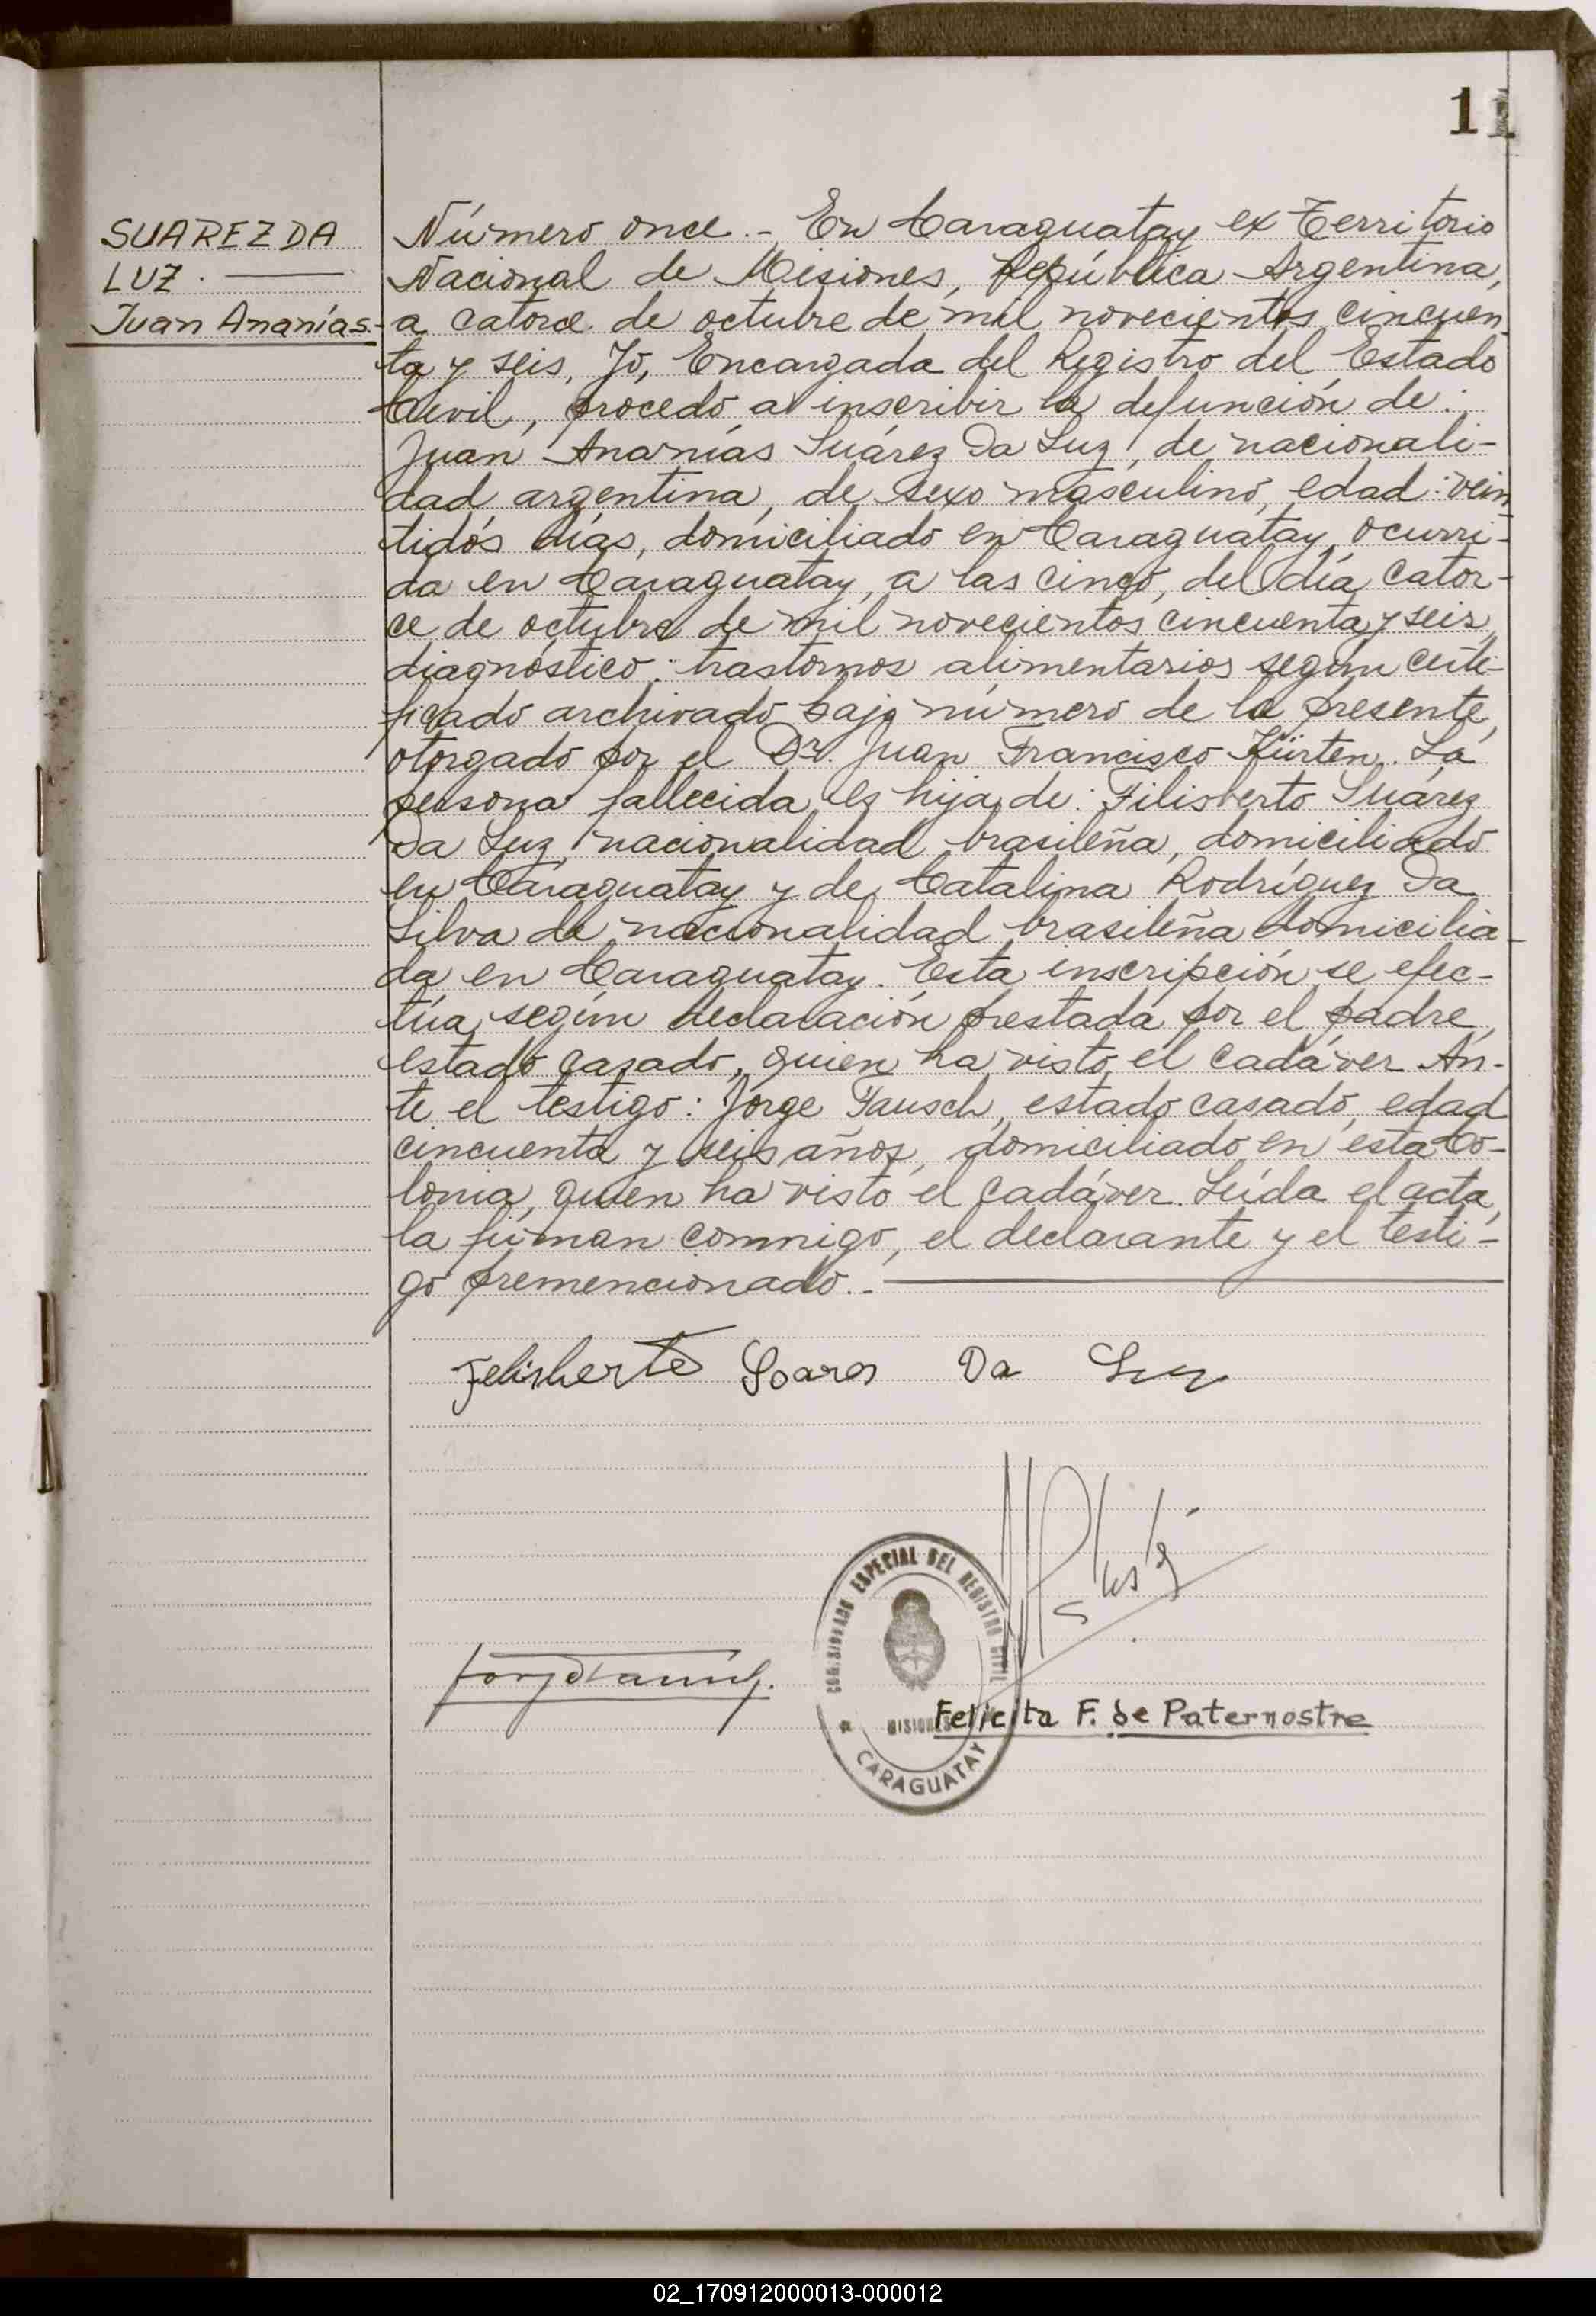 11
SUAREZ DA
LUZ.
Juan Ananías.-
Número once.- En Caraguatay ex Territorio
Nacional de Misiones, República Argentina,
a catorce de octubre de mil novecientos cincuen-
ta y seis, Yo, Encargada del Registro del Estado
Civil, procedo a inscribir la defunción de:
Juan Ananías Suárez Da Luz, de nacionali-
dad argentina, de sexo masculino, edad: vein-
tidós días, domiciliado en Caraguatay, ocurri-
da en Caraguatay, a las cinco, del día cator-
ce de octubre de mil novecientos cincuenta y seis,
diagnóstico: trastornos alimentarios según certi-
ficado archivado bajo número de la presente,
otorgado por el Dr. Juan Francisco Kürten. La
persona fallecida es hija de: Filisberto Suárez
Da Luz, nacionalidad brasileña, domiciliado
en Caraguatay y de Catalina Rodríguez Da
Silva de nacionalidad brasileña domicilia-
da en Caraguatay. Esta inscripción se efec-
túa según declaración prestada por el padre,
estado casado, quien ha visto el cadáver. An-
te el testigo: Jorge Tausch, estado casado, edad
cincuenta y seis años, domiciliado en esta Co-
lonia, quien ha visto el cadáver. Leída el acta,
la firman conmigo, el declarante y el testi-
go premencionado.-
Felisberto Soares Da Luz
COMISIONADO ESPECIAL DEL REGISTRO CIVIL
MISIONES
CARAGUATAY
Felicita F. de Paternostre
02_170912000013-000012